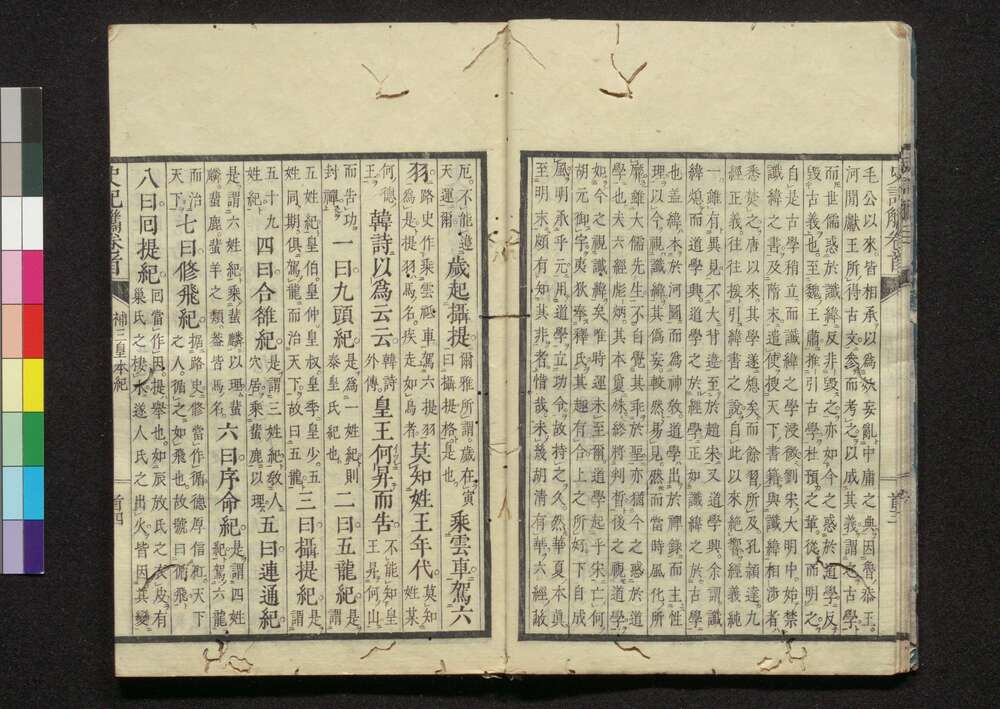 毛公以來皆相承以爲妖妄亂中庸之典因魯恭王
河間獻王所得古文參而考之以成其義謂之古學
而世儒惑於讖緯反非毀之亦如今之惑於道學反
毀古義也至魏王肅推引古學杜預之輩從而明之
自是古學稍立而讖緯之學浸微劉宋大明中始禁
讖緯之書及隋末遣使搜天下書籍與讖緯相涉者
悉焚之唐以來其學遂熄矣而餘習所及孔穎達九
經正義往往援引緯書之說自此以來絶響經義純
一雖有異見不大背違至於趙宋又道學興余謂讖
緯熄而道學興道學之於經學正如讖緯之於古學
也盖緯本於河圖而爲神敬道學出於禪錄而主性
理以今視讖緯其偽妄較然易見然而當時風化所
靡雖大儒先生不自覺其非於聖亦猶今之惑於道
學也夫六經彪炳其本奠殊終將判哲後之視道學
如今之視讖緯矣惟時運未至爾道學起乎宋亡何
胡元御宇夷狄無釋氏其趣有合上之所好下自成
風明承乎元用道學立功令故持之久然華夏本眞
至明末頗有知其非者惜哉未幾胡清有華六經故
厄不能遶
天運爾
歲起攝提
爾雅所謂歲在寅
曰攝提格是也
乘雲車駕六
羽
路史作乘雲䄡車駕六提羽
爲是提羽馬名疾走如鳥者
莫知姓王年代
莫知
姓某
何德
王
韓詩以爲云云
韓詩
外傳
皇王何昇而告
不能知皇
王昇何山
而告功
封禪
一曰九頭紀
是爲一姓紀則
泰皇氏紀也
二曰五龍紀
是謂
五姓紀皇伯皇仲皇叔皇季皇少五
姓同期俱駕龍而治天下故曰五龍
三曰攝提紀
是謂
五十九
姓紀
四曰合雒紀
是謂三姓紀敎人
穴居乘蜚鹿以理
五曰連通紀
是謂六姓紀乘蜚麟以理蜚
麟蜚鹿蜚羊之類葢皆馬名
六曰序命紀
是謂四姓
紀駕六龍
而治
天下
七曰修飛紀
據路史脩當作循德厚信矼天下
之人循之如飛也故號曰循飛
八曰囘提紀
囘當作因提擧也如辰放氏之衣皮有
巢氏之棲木遂人氏之出火皆因其變
補三皇本紀
首四